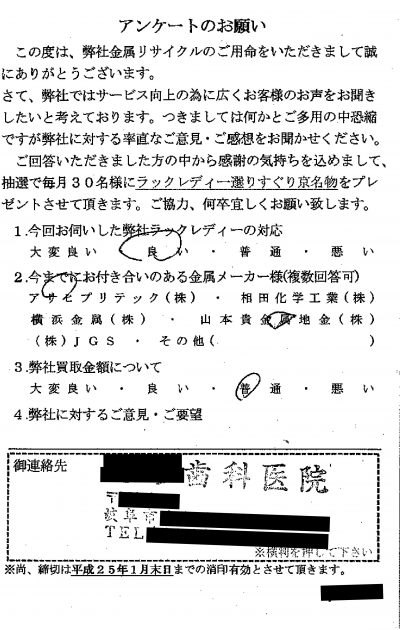 アンケートのお願い
この度は、弊社金属リサイクルのご用命をいただきまして誠
にありがとうございます。
さて、弊社ではサービス向上の為に広くお客様のお声をお聞き
したいと考えております。つきましては何かとご多用の中恐縮
ですが弊社に対する率直なご意見・ご感想をお聞かせください。
ご回答いただきました方の中から感謝の気持ちを込めまして、
抽選で毎月30名様にラックレディー選りすぐり京名物をプレ
ゼントさせて頂きます。ご協力、何卒宜しくお願い致します。
1.今回お伺いした弊社ラックレディーの対応
大変良い ・ 良い ・ 普通 ・ 悪い
2.今までにお付き合いのある金属メーカー様(複数回答可)
アサヒプリテック(株) ・ 相田化学工業(株)
横浜金属(株) ・ 山本貴金属地金(株)
(株)JGS ・ その他( )
3.弊社買取金額について
大変良い ・ 良い ・ 普通 ・ 悪い
4.弊社に対するご意見・ご要望
御連絡先
歯科医院
〒
岐阜市
TEL
※横判を押して下さい
※尚、締切は平成25年1月末日までの消印有効とさせて頂きます。